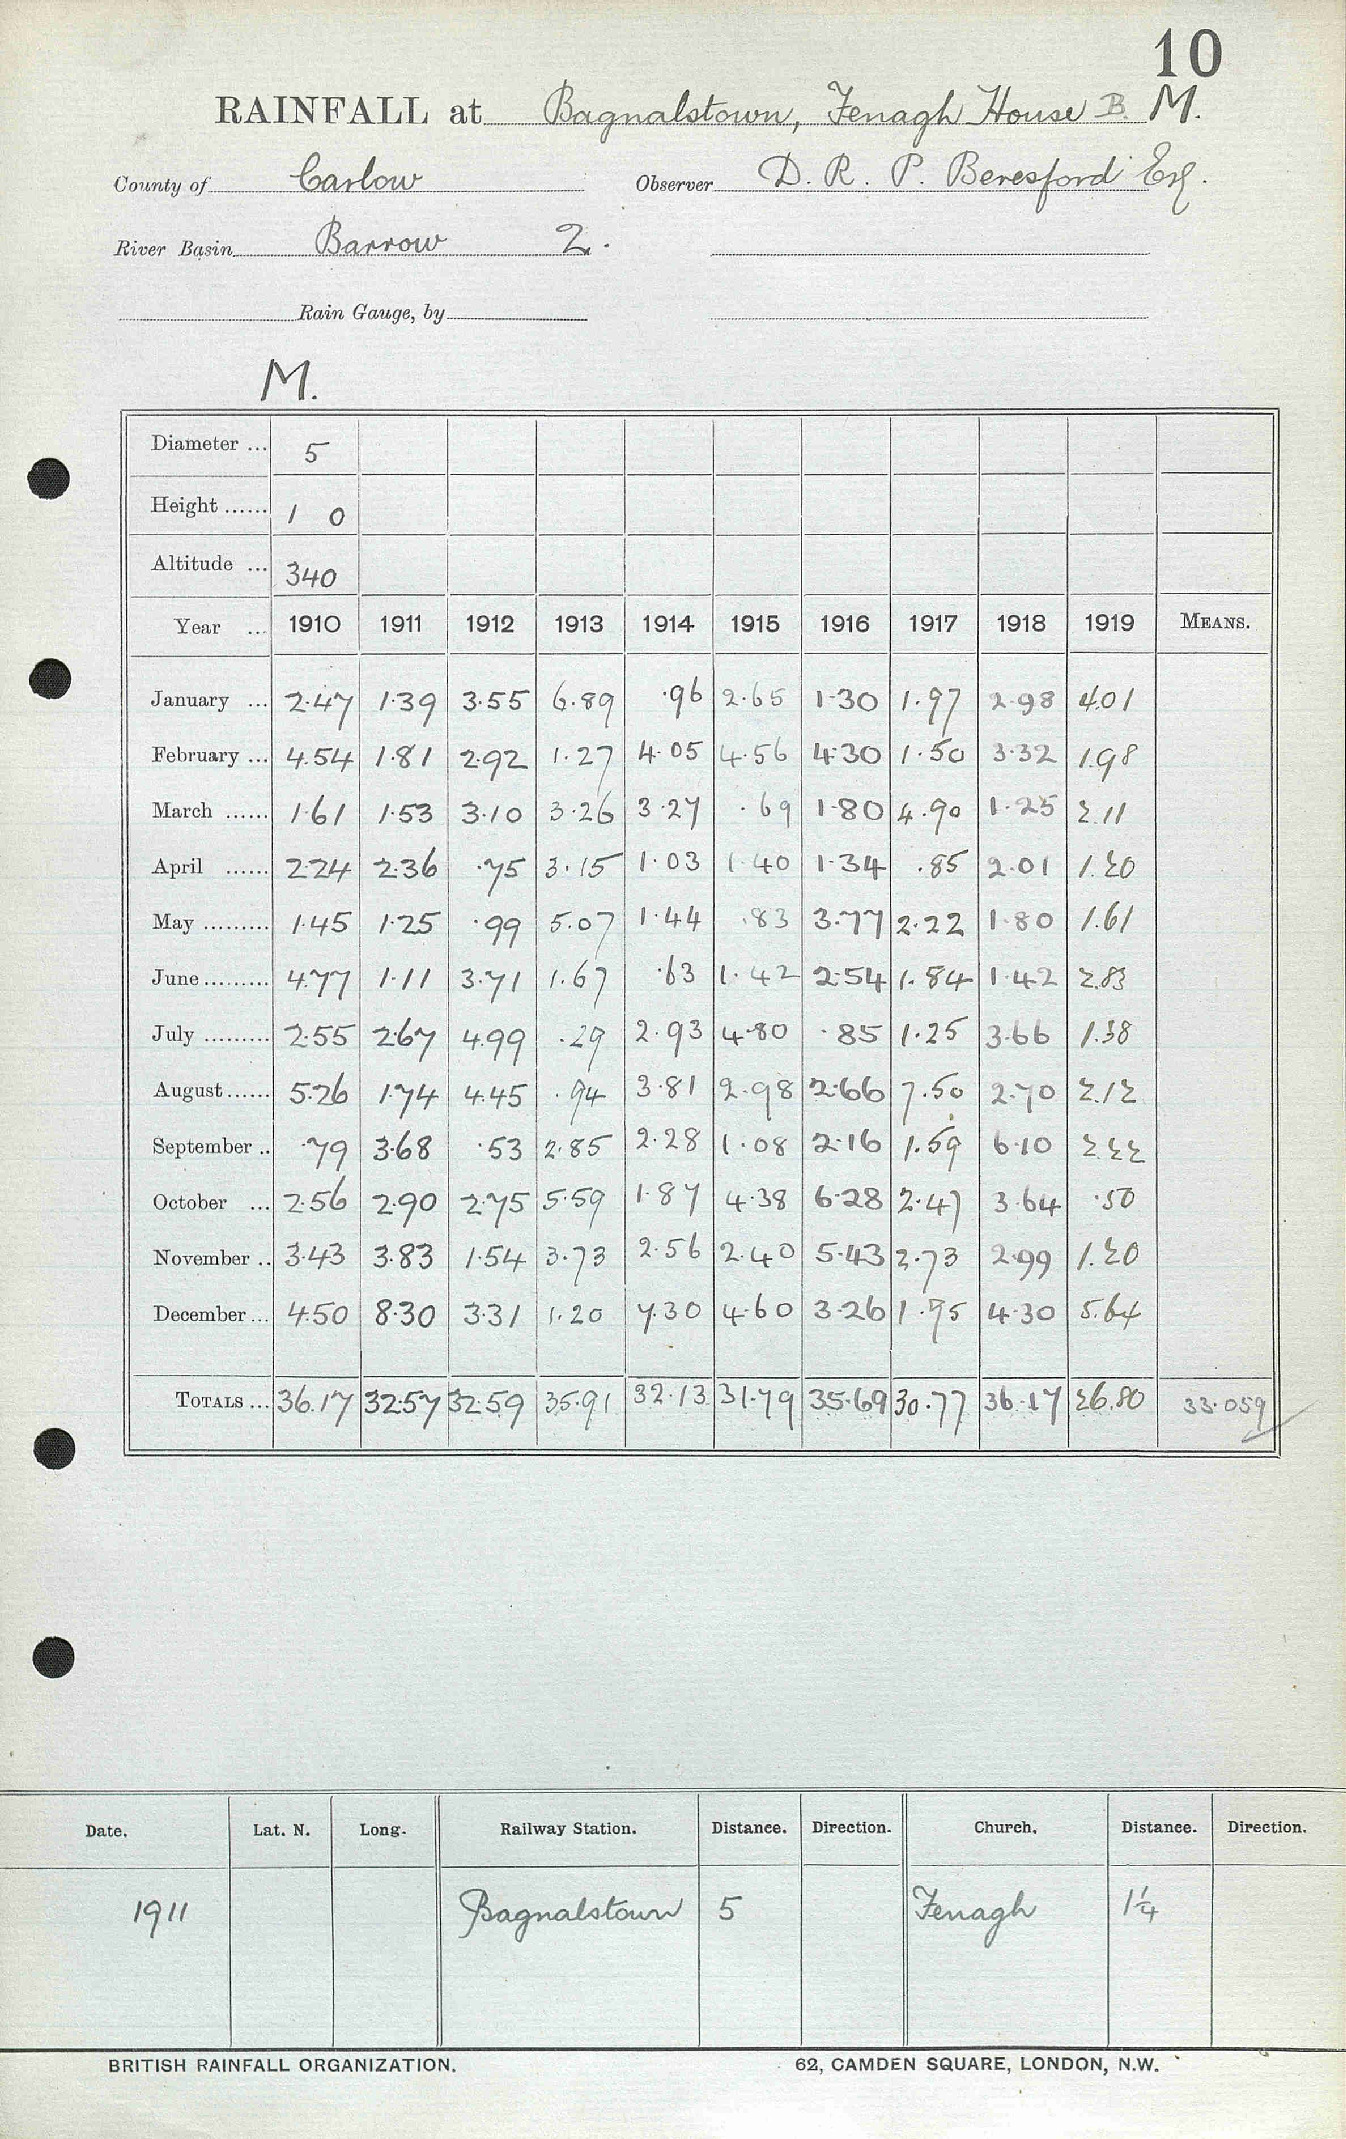 10
RAINFALL at Bagnalstown, Fenagh House B. M.
County of Carlow Observer D. R. P. Beresford Esq.
River Basin Barrow 2.
Rain Gauge, by
M.
Diameter ... 5
Height ...... 1 0
Altitude ... 340
Year ... 1910 1911 1912 1913 1914 1915 1916 1917 1918 1919 MEANS.
January ... 2.47 1.39 3.55 6.89 .96 2.65 1.30 1.97 2.98 4.01
February ... 4.54 1.81 2.92 1.27 4.05 4.56 4.30 1.50 3.32 1.98
March ...... 1.61 1.53 3.10 3.26 3.27 .69 1.80 4.90 1.25 2.11
April ...... 2.24 2.36 .75 3.15 1.03 1.40 1.34 .85 2.01 1.20
May ......... 1.45 1.25 .99 5.07 1.44 .83 3.77 2.22 1.80 1.61
June ......... 4.77 1.11 3.71 1.67 .63 1.42 2.54 1.84 1.42 2.83
July ......... 2.55 2.67 4.99 .29 2.93 4.80 .85 1.25 3.66 1.38
August ...... 5.26 1.74 4.45 .94 3.81 2.98 2.66 7.50 2.70 2.12
September .. .79 3.68 .53 2.85 2.28 1.08 2.16 1.59 6.10 2.22
October ... 2.56 2.90 2.75 5.59 1.87 4.38 6.28 2.47 3.64 .50
November .. 3.43 3.83 1.54 3.73 2.56 2.40 5.43 2.73 2.99 1.20
December ... 4.50 8.30 3.31 1.20 7.30 4.60 3.26 1.95 4.30 5.64
TOTALS ... 36.17 32.57 32.59 35.91 32.13 31.79 35.69 30.77 36.17 26.80 33.059
Date. Lat. N. Long. Railway Station. Distance. Direction. Church. Distance. Direction.
1911 Bagnalstown 5 Fenagh 1¼
BRITISH RAINFALL ORGANIZATION. 62, CAMDEN SQUARE, LONDON, N.W.